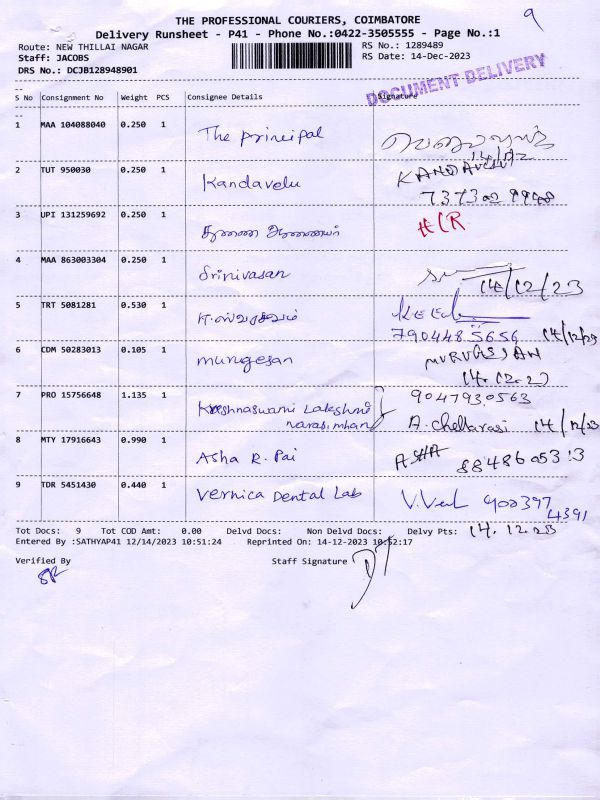 9
THE PROFESSIONAL COURIERS, COIMBATORE
Delivery Runsheet - P41 - Phone No.:0422-3505555 - Page No.:1
Route: NEW THILLAI NAGAR
RS No.: 1289489
Staff: JACOBS
RS Date: 14-Dec-2023
DRS No.: DCJB128948901
DOCUMENT DELIVERY
S No Consignment No Weight PCS Consignee Details Signature
1 MAA 104088040 0.250 1 The principal
14/12
2 TUT 950030 0.250 1 Kandavelu KANDAVELU
3 UPI 131259692 0.250 1
4 MAA 863003304 0.250 1 Srinivasan 14/12/23
5 TRT 5081281 0.530 1
7904485656 14/12/23
6 CDM 50283013 0.105 1 murugesan MURUGESAN
14.12.23
7 PRO 15756648 1.135 1 Kreshnaswami Lakshmi 9047930563
narasimhan A. Chellarasi 14/12/23
8 MTY 17916643 0.990 1 Asha R. Pai ASHA 8848605313
9 TDR 5451430 0.440 1 Vernica Dental Lab V.Vel 900397
4391
Tot Docs: 9 Tot COD Amt: 0.00 Delvd Docs: Non Delvd Docs: Delvy Pts: 14.12.23
Entered By :SATHYAP41 12/14/2023 10:51:24 Reprinted On: 14-12-2023 10:52:17
Verified By Staff Signature